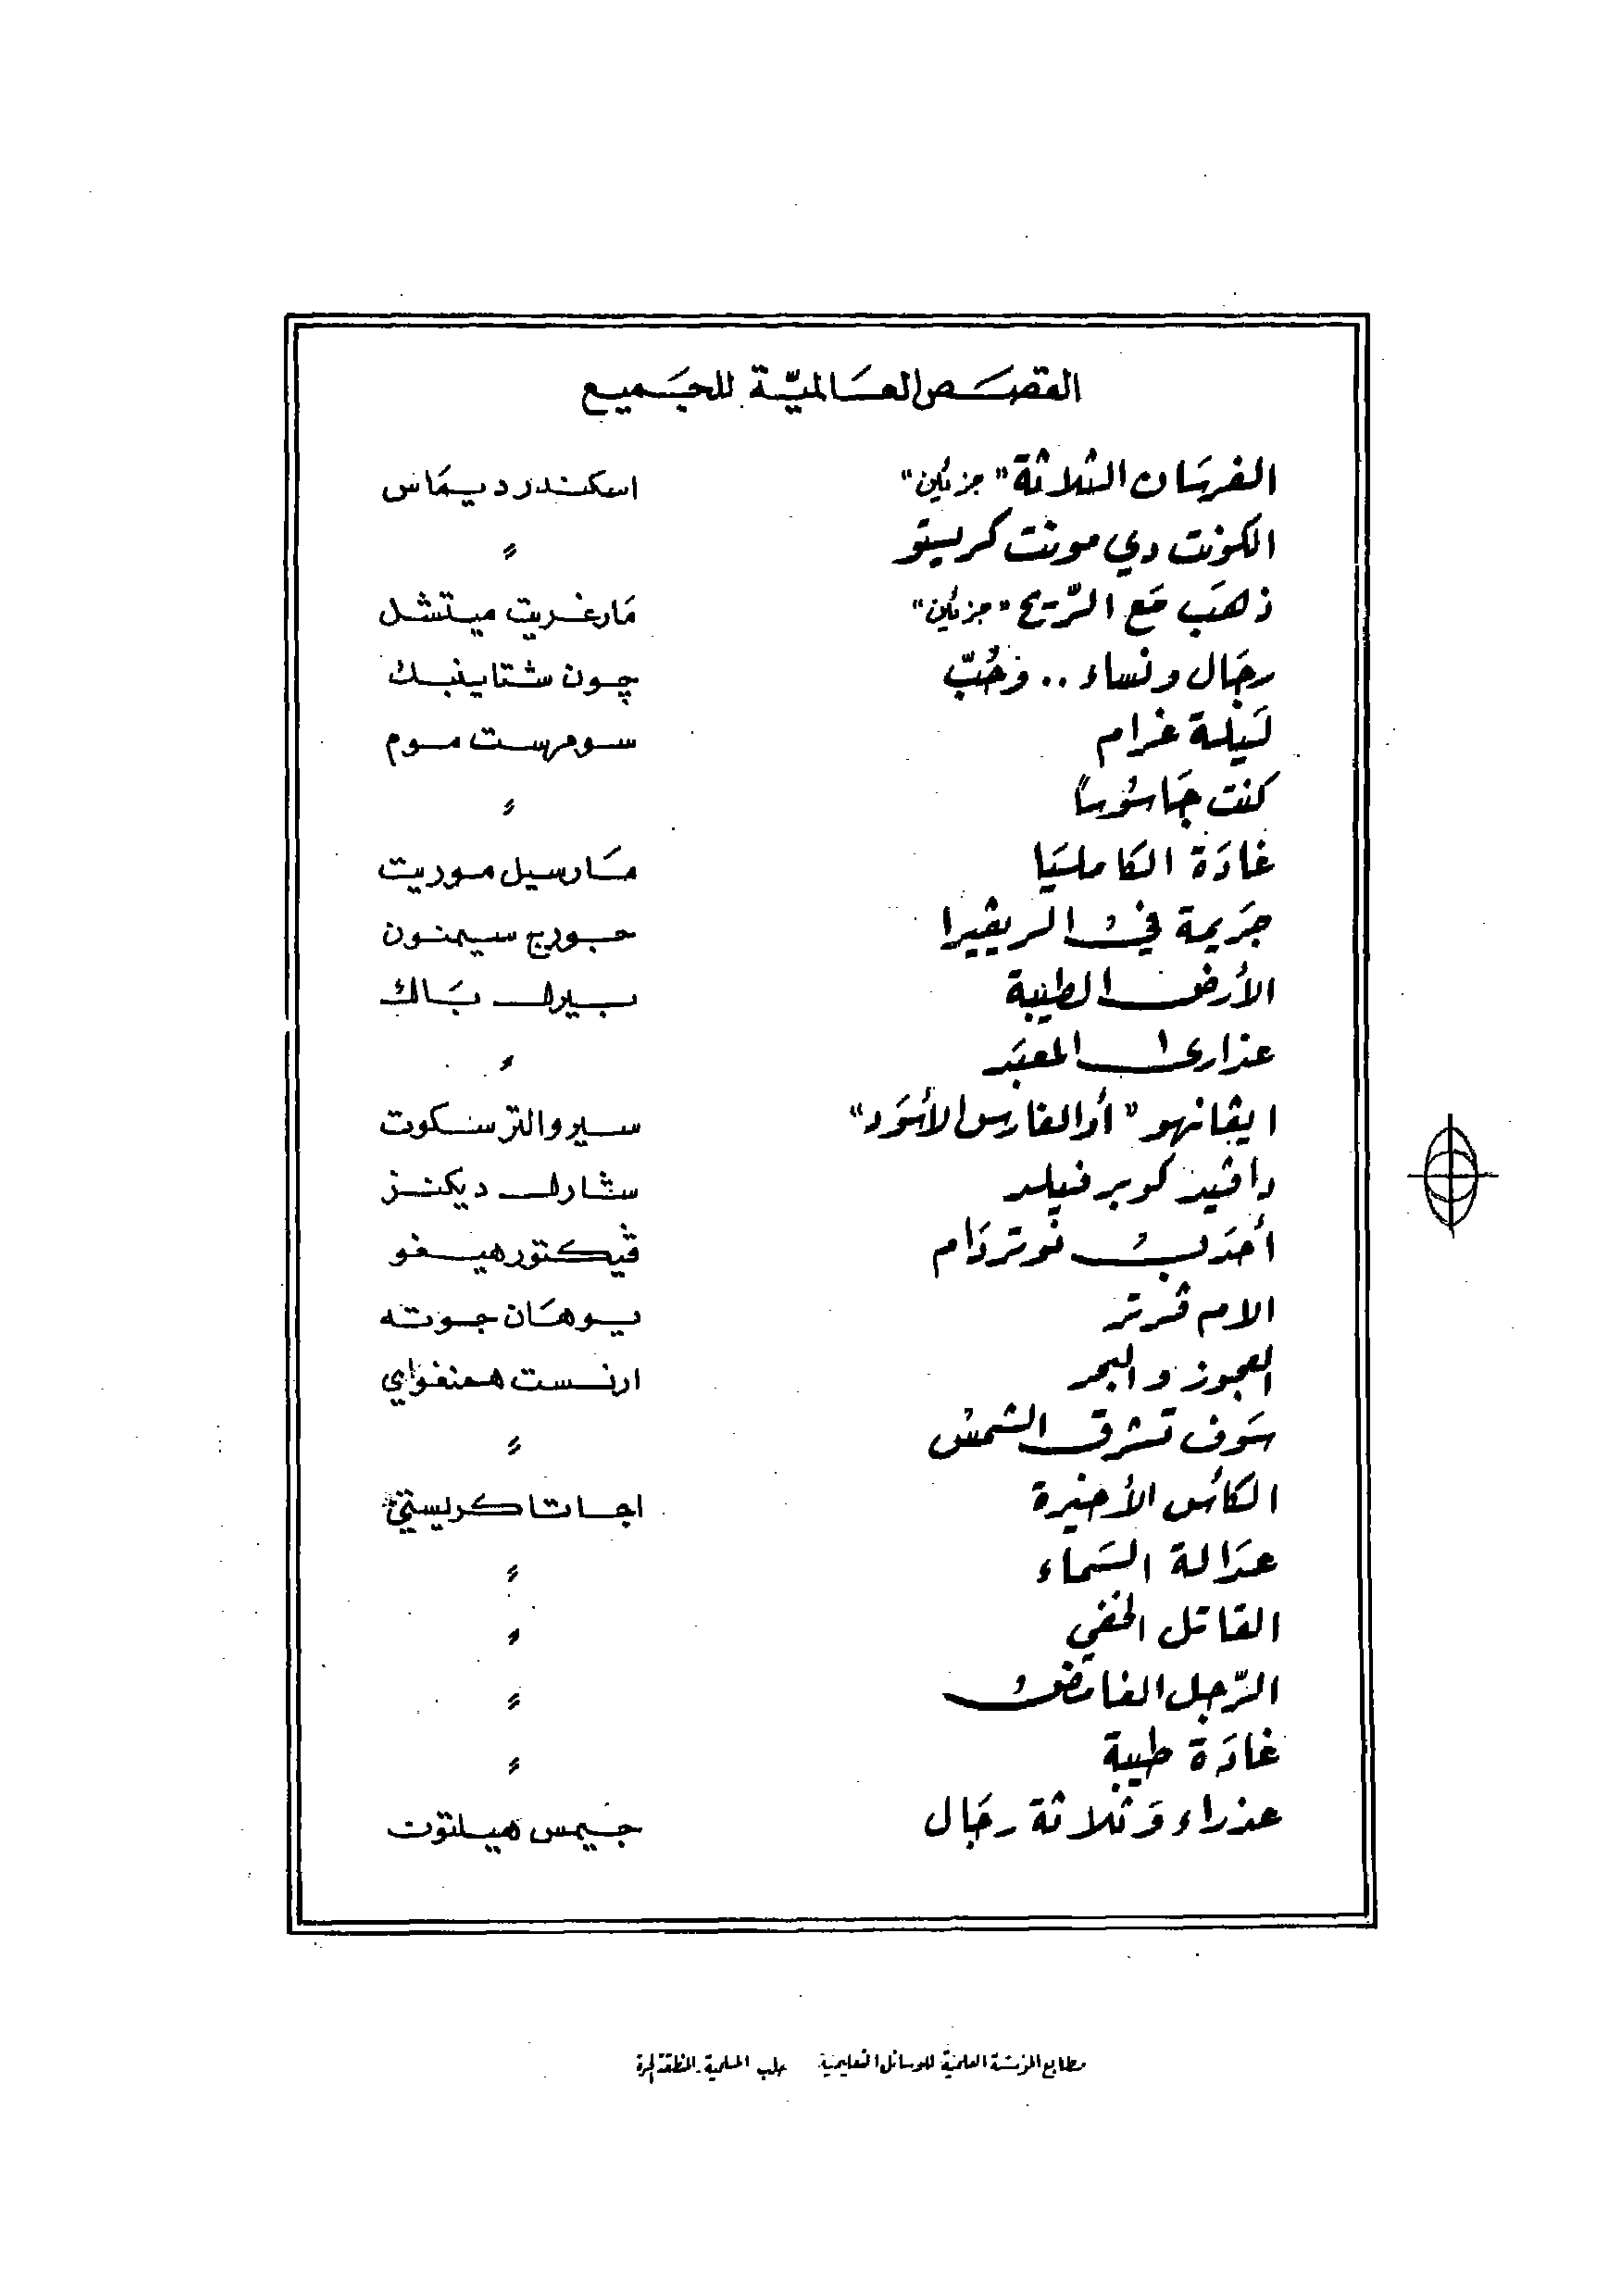 القصَص العَالميّة للجَميع
الفرسَان الثلاثة "جزئين" اسكندر ديمَاس
الكونت دي مونت كريستو 〃
ذهَب مَع الرّيح "جزئين" مَارغريت ميتشل
رجَال ونساء .. وَحُبّ چون شتاينبك
لَيلة غرام سومرست موم
كنت جَاسُوساً 〃
غادَة الكامليَا مَارسيل موريت
جَريمة في الريڤيرا جورج سيمنون
الأرض الطيبة بيرل بَاك
عذارى المعبَد 〃
ايڤانهو "أو الفارس الأسوَد" سير والتر سكوت
داڤيد كوبرفيلد شارل ديكنز
أحدَب نوتردَام ڤيكتور هيغو
الام ڤرتر يوهَان جوته
العجوز والبحر ارنست همنغواي
سَوف تشرق الشمس 〃
الكأس الأخيرة اجاتا كريستي
عدَالة السَماء 〃
القاتل الخفي 〃
الرّجل الغامض 〃
غادَة طيبة 〃
عذراء وَثلاثة رجَال جيمس هيلتون
مطابع المؤسسة العلمية للوسائل التعليمية حلب المسلمية المنطقة الحرة